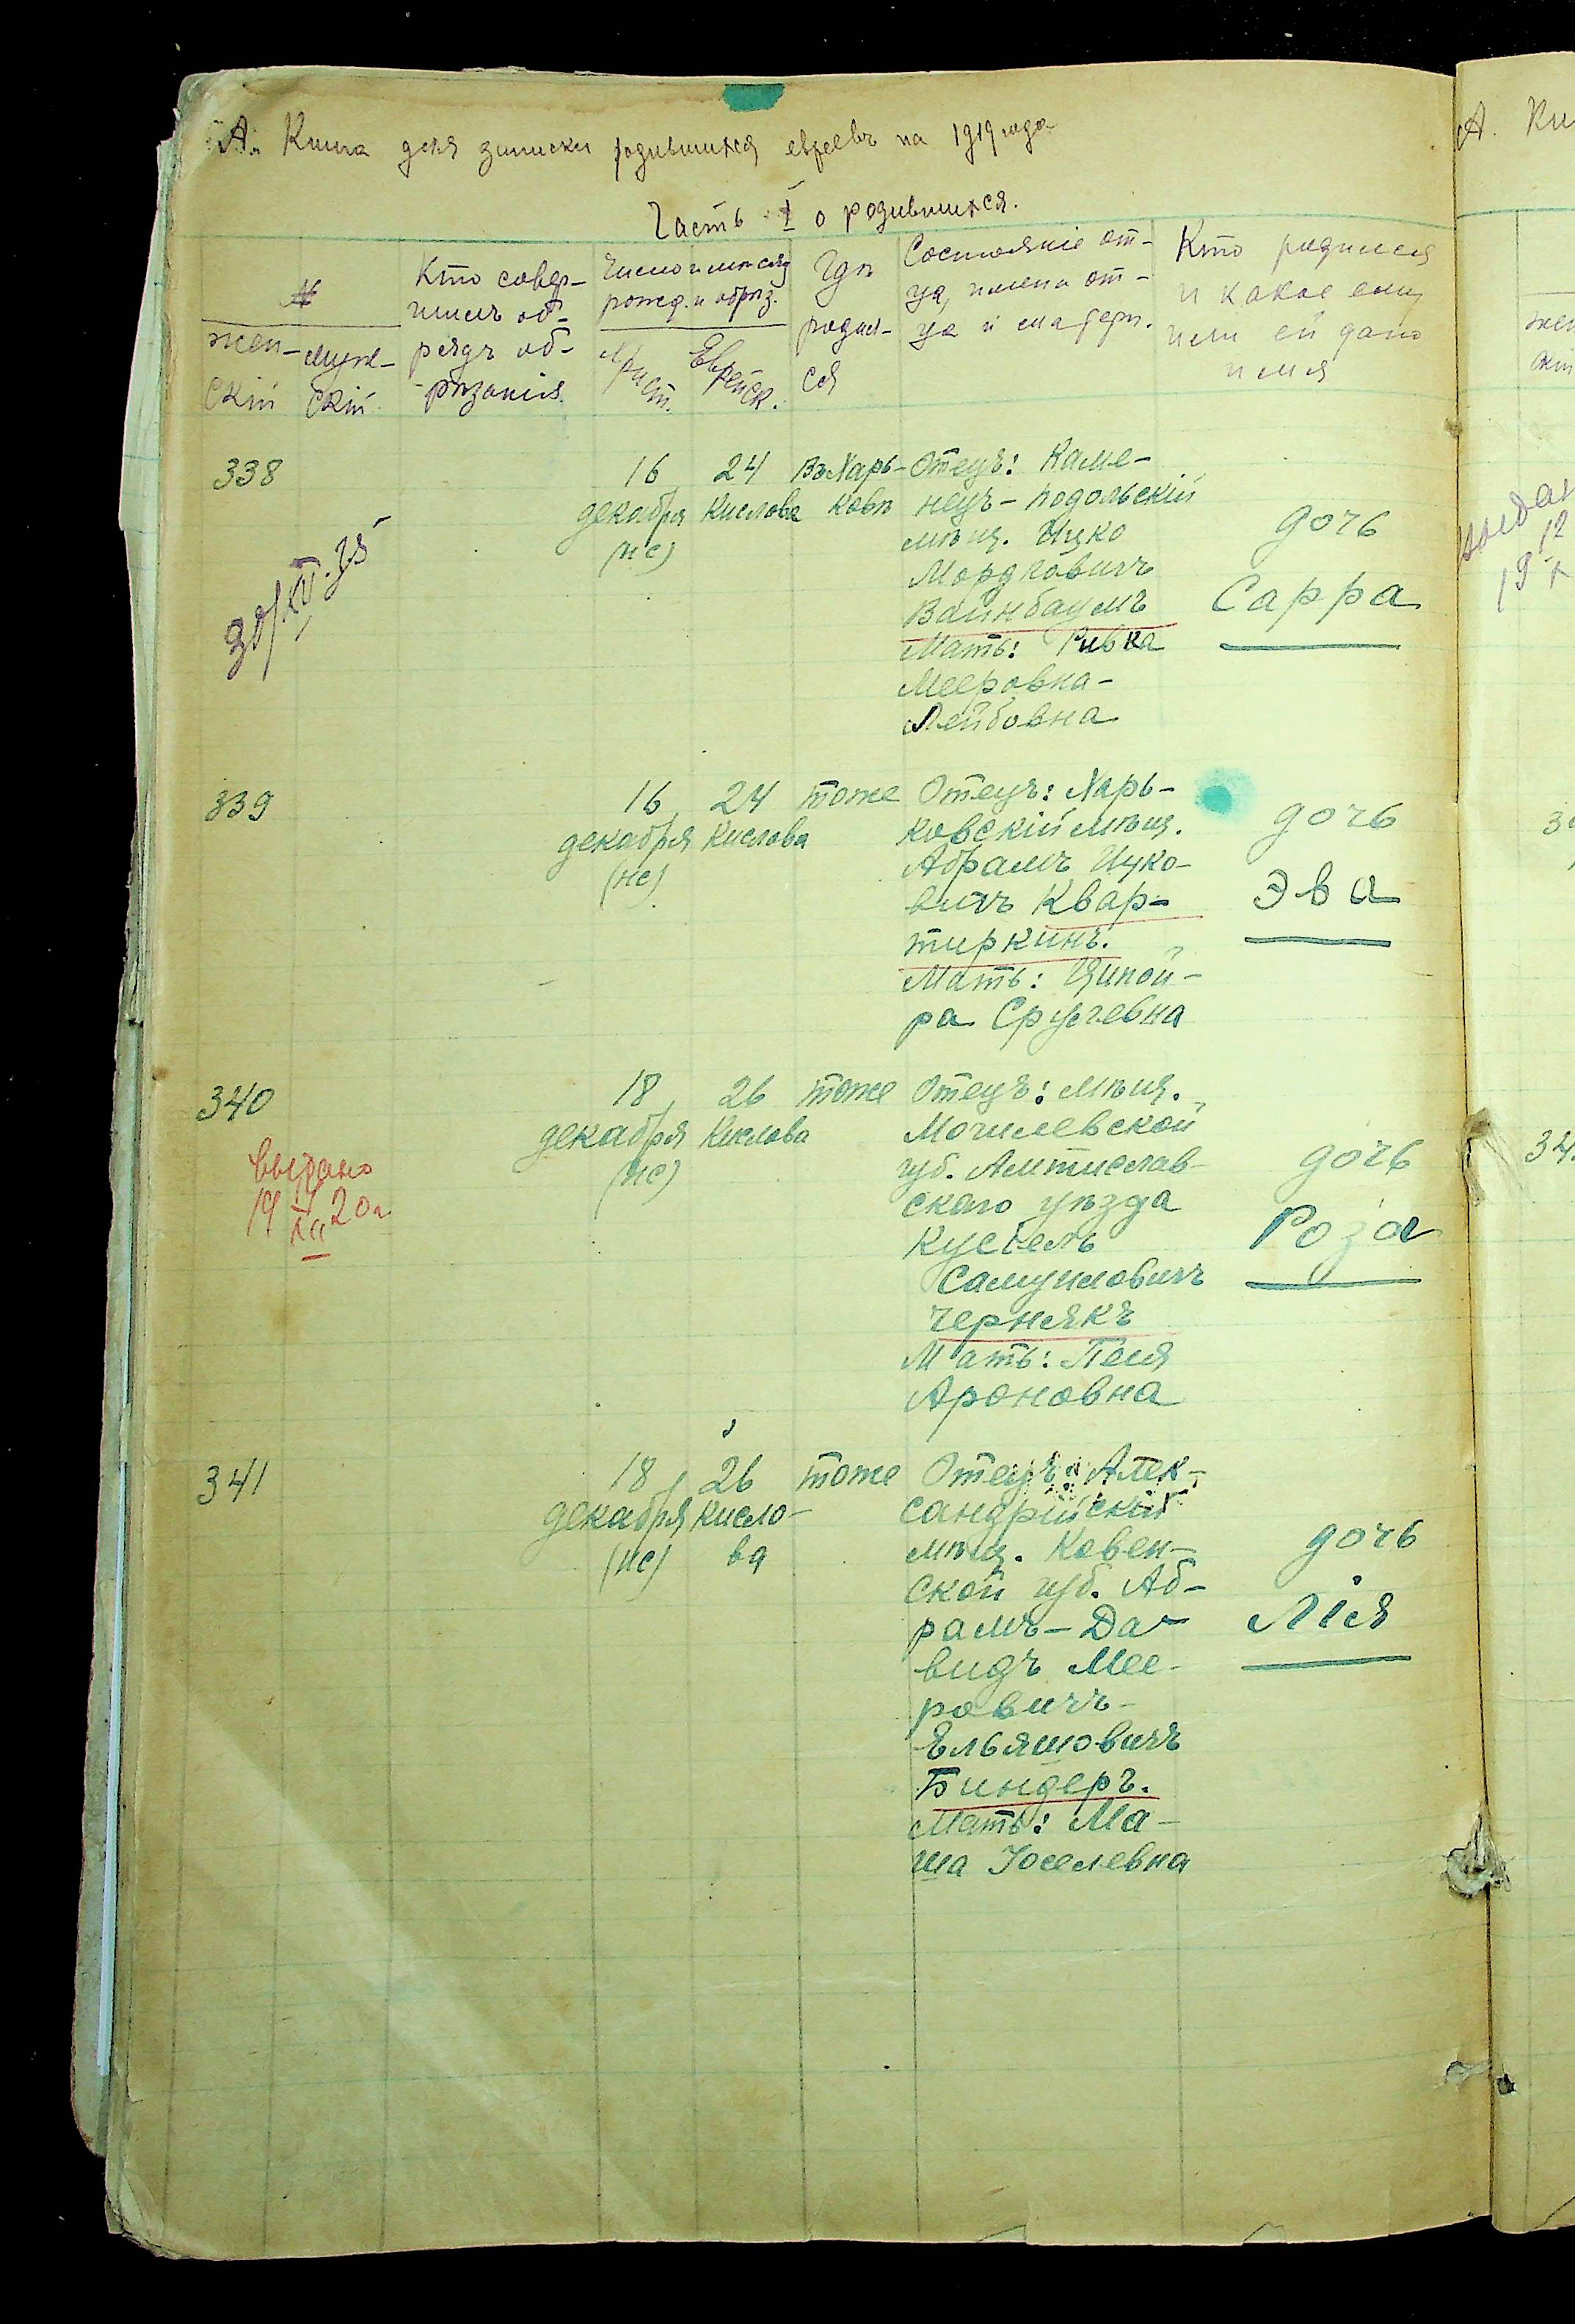 А. Книга для записки родившихся евреевъ на 1919 года
Часть I о родившихся.
№
жен-
скій
муж-
скій
Кто совер-
шилъ об-
рядъ об-
рѣзанія.
Число и мѣсяц
рожд. и обрѣз.
Христ.
Еврейск.
Гдѣ
родил-
ся
Состояніе от-
ца, имена от-
ца и матери.
Кто родился
и какое ему
или ей дано
имя
338
16
декабря
(нс)
24
Кислова
Въ Харь-
ковѣ
Отецъ: Каме-
нецъ-подольскій
мѣщ. Ицко
Мордковичъ
Вайнбаумъ
Мать: Ривка
Мееровна-
Лейбовна
дочь
Сарра
339
16
декабря
(нс)
24
Кислова
тоже
Отецъ: Харь-
ковскій мѣщ.
Абрамъ Ицко-
вичъ Квар-
тиркинъ.
Мать: Ципой-
ра Срулевна
дочь
Эва
340
выдано
18
декабря
(нс)
26
Кислова
тоже
Отецъ: мѣщ.
Могилевской
губ. Амтислав-
скаго уѣзда
Кусіель
Самуиловичъ
Чернякъ
Мать: Песя
Ароновна
дочь
Роза
341
18
декабря
(нс)
26
Кисло-
ва
тоже
Отецъ: Алек-
сандрійскій
мѣщ. Ковен-
ской губ. Аб-
рамъ-Да-
видъ Мее-
ровичъ-
Ельяшовичъ
Биндеръ.
Мать: Ма-
ша Іоселевна
дочь
Лія